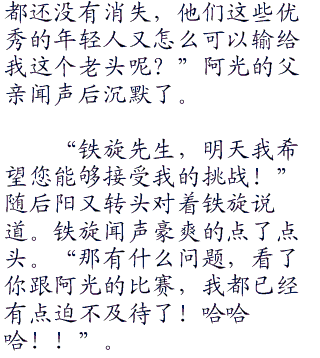 都还没有消失，他们这些优
秀的年轻人又怎么可以输给
我这个老头呢？”阿光的父
亲闻声后沉默了。
“铁旋先生，明天我希
望您能够接受我的挑战！”
随后阳又转头对着铁旋说
道。铁旋闻声豪爽的点了点
头。“那有什么问题，看了
你跟阿光的比赛，我都已经
有点迫不及待了！哈哈
哈！！”。